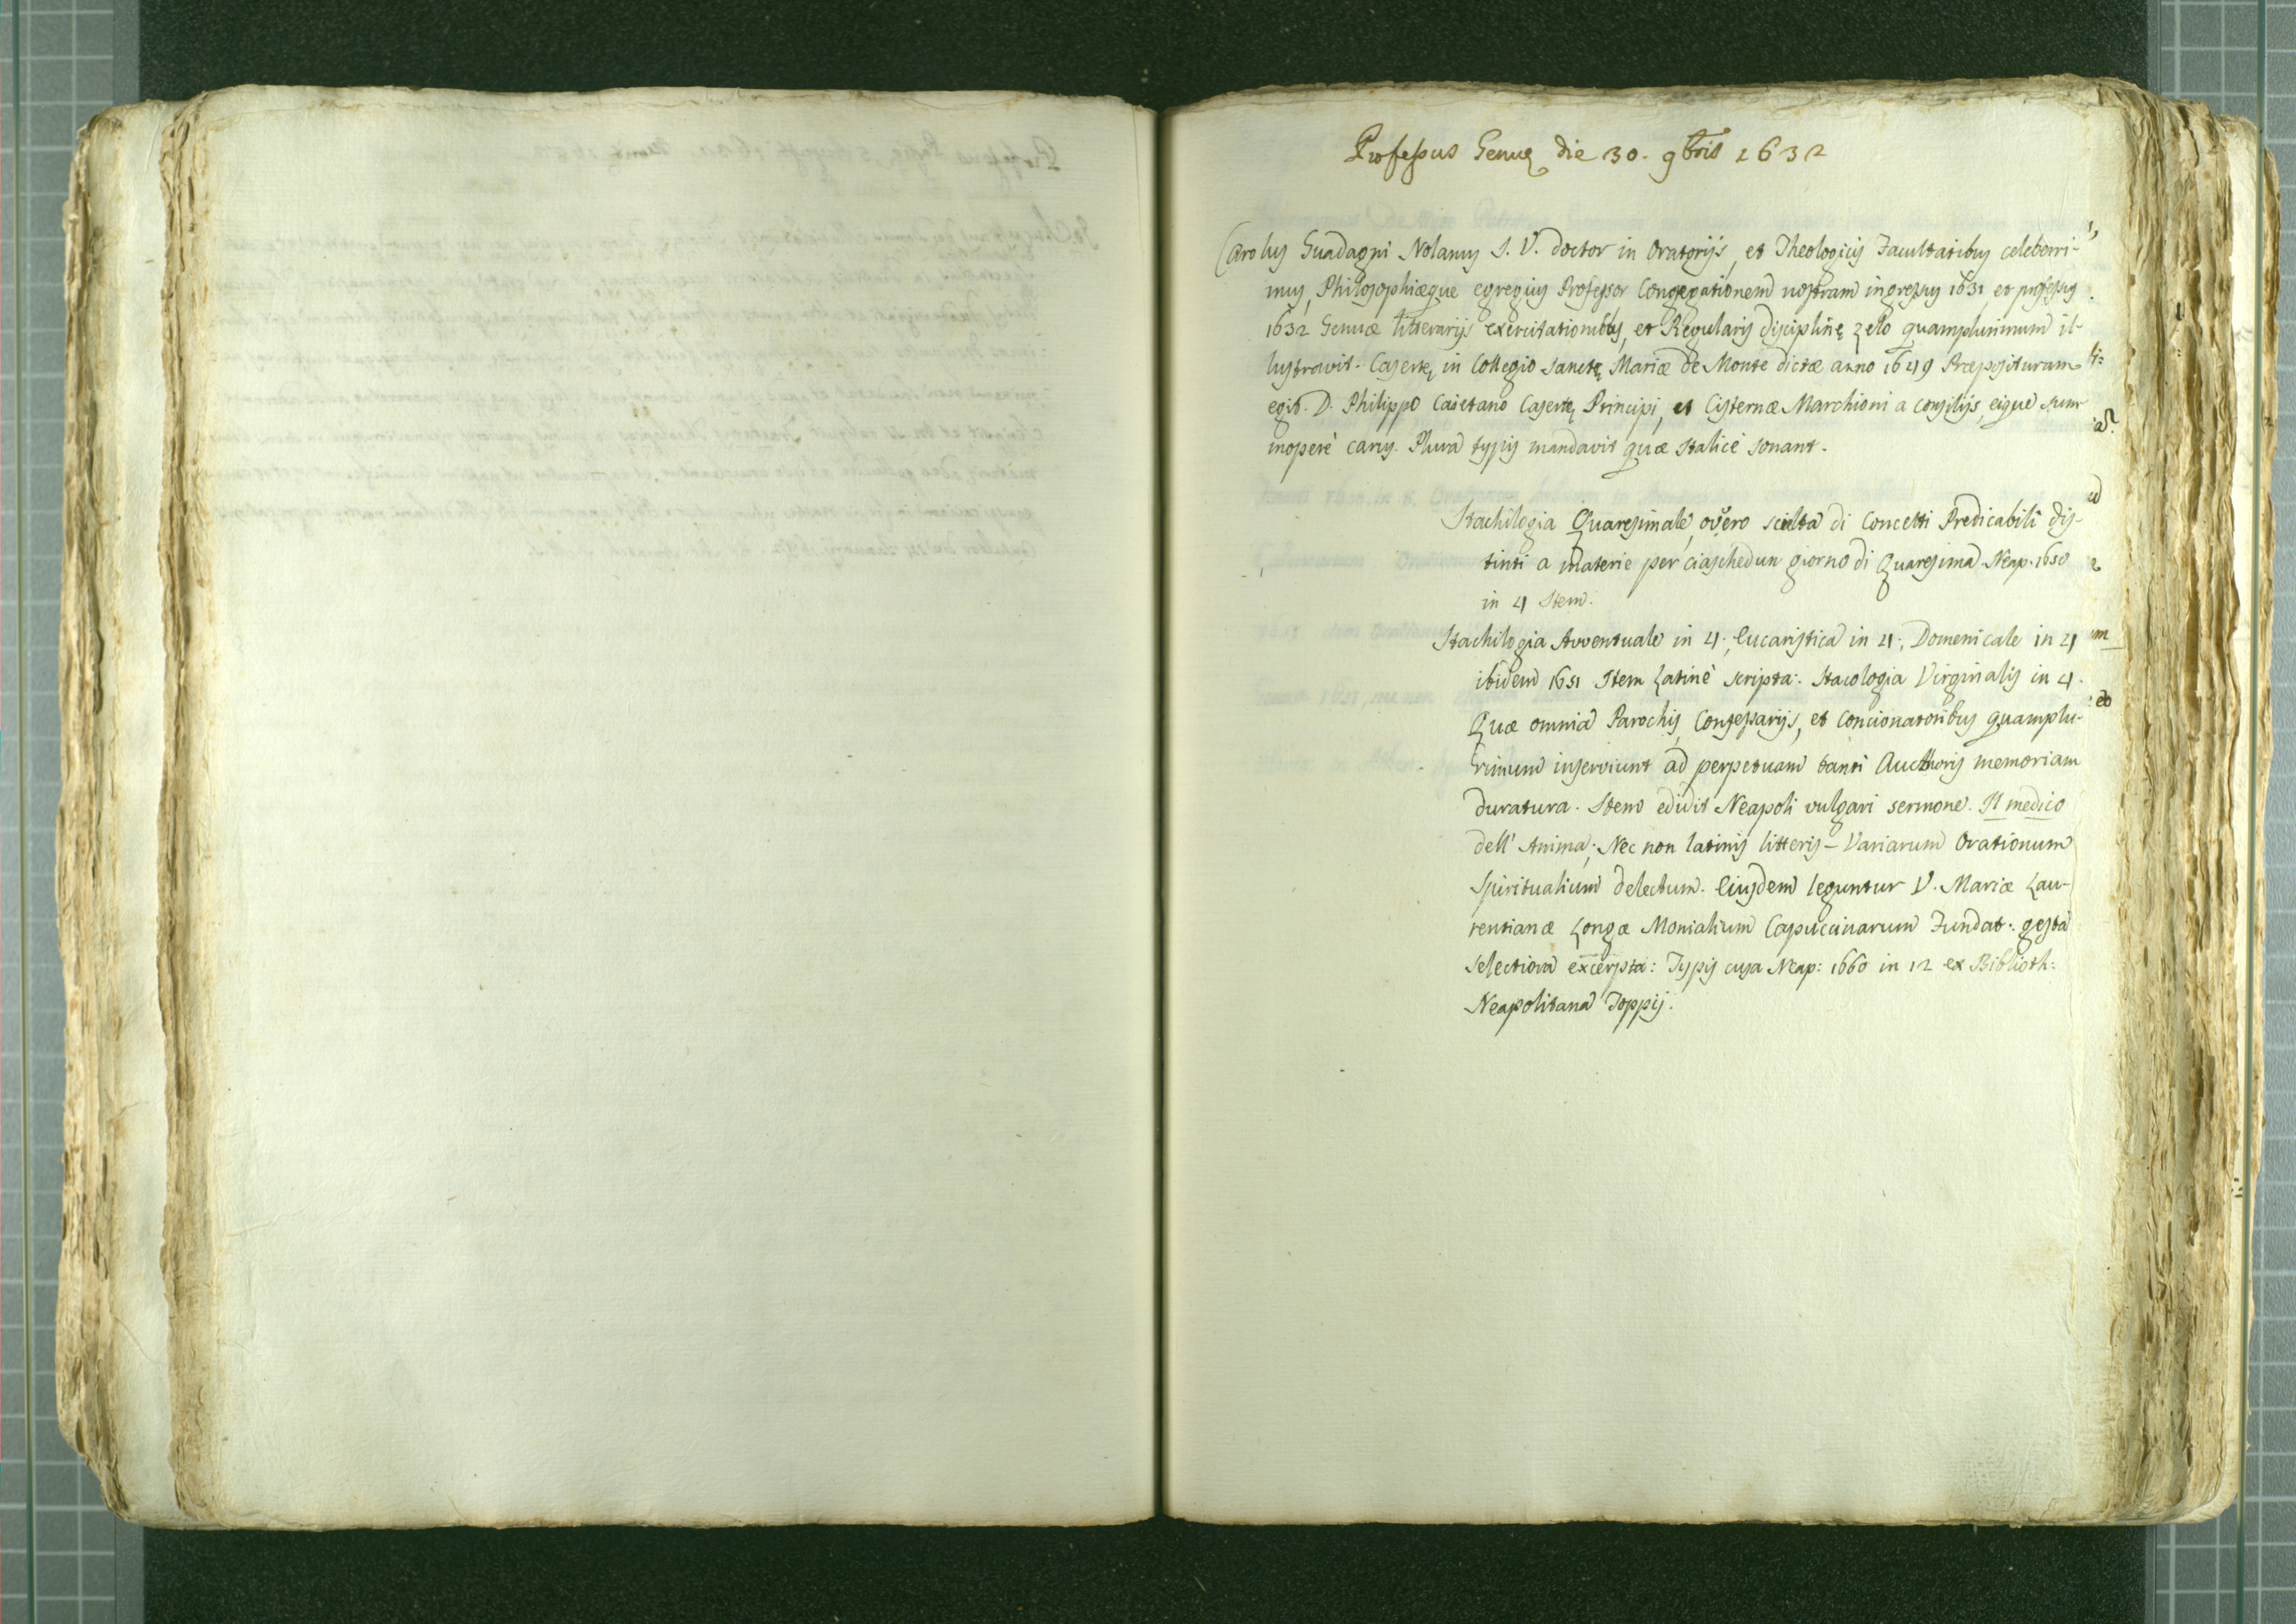 Professus Genuę die 30. 9bris 1632
Carolus Guadagni Nolanus I. V. doctor in Oratorijs, et Theologicis Facultatibus celeberri-
mus, Philosophiæque egregius Professor Congregationem nostram ingressus 1631 et professus
1632 Genuæ litterarijs exercitationibus, et Regularis disciplinę zelo quamplurimum il-
lustravit. Casertę in Collegio sanctę Mariæ de Monte dictæ anno 1649 Præposituram
egit. D. Philippo Caietano Casertę Principi, et Cisternæ Marchioni a consilijs, eique sum-
moperè carus. Plura typis mandavit quæ Italicè sonant.
Stachilogia Quaresimale, overo scielta di Concetti Predicabili dis-
tinti a materie per ciaschedun giorno di Quaresima. Neap. 1650
in 4 Item.
Stachilogia Avventuale in 4; Eucaristica in 4; Domenicale in 4
ibidem 1651 Item Latinè scripta: Stacologia Virginalis in 4.
Quæ omnia Parochis, Confessarijs, et Concionatoribus quamplu-
rimum inserviunt ad perpetuam tanti Aucthoris memoriam
duratura. Item edidit Neapoli vulgari sermone. Il medico
dell' Anima; Nec non latinis litteris - Variarum Orationum
Spiritualium delectum. Eiusdem leguntur V. Mariæ Lau-
rentianæ Longæ Monialium Capuccinarum Fundat: gesta
selectiora excerpta: Typis cusa Neap: 1660 in 12 ex Biblioth:
Neapolitana Toppij.